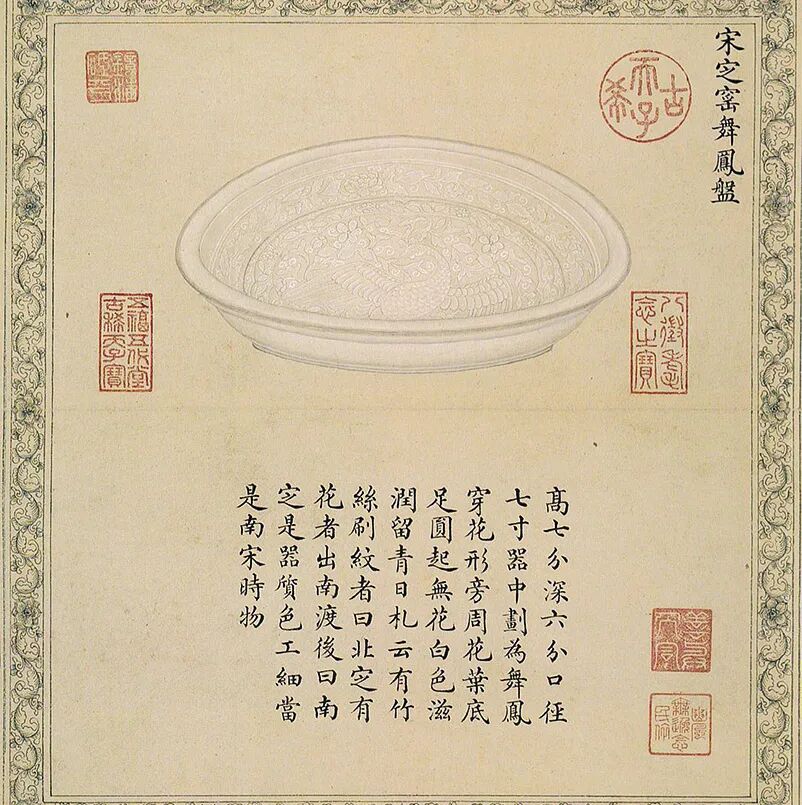 宋㝎窰舞鳳盤
古希天子
八徵耄念之寶
五福五代堂古稀天子寶
高七分深六分口徑
七寸器中劃為舞鳳
穿花形旁周花葉底
足圓起無花白色滋
潤留青日札云有竹
絲刷紋者曰北㝎有
花者出南渡後曰南
㝎是器質色工細當
是南宋時物